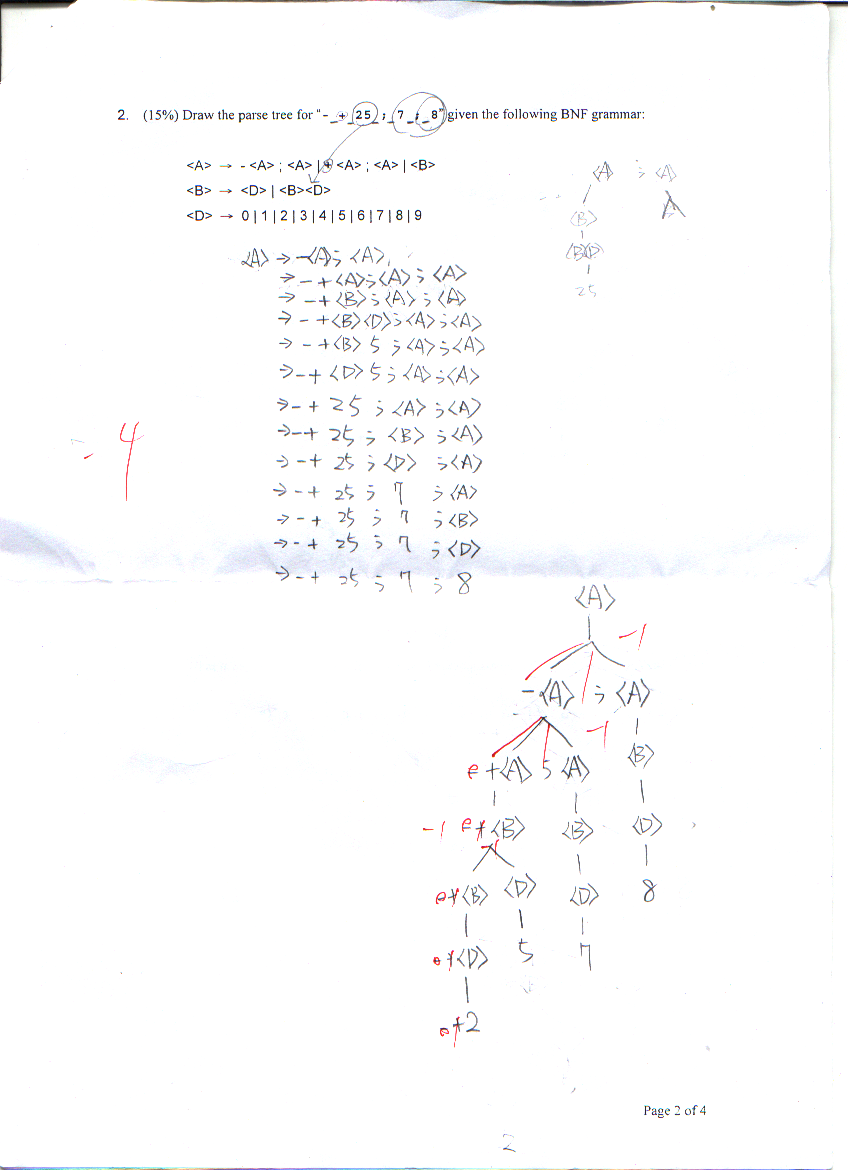 2. (15%) Draw the parse tree for "- + 25 ; 7 ; 8" given the following BNF grammar:
<A> → - <A> ; <A> | + <A> ; <A> | <B>
<B> → <D> | <B><D>
<D> → 0 | 1 | 2 | 3 | 4 | 5 | 6 | 7 | 8 | 9
<A> ; <A>
<B>
<B><D>
25
<A> → -<A>; <A>
→ - + <A>;<A> ; <A>
→ - + <B> ; <A> ; <A>
→ - + <B><D> ; <A> ; <A>
→ - + <B> 5 ; <A> ; <A>
→ - + <D> 5 ; <A> ; <A>
→ - + 25 ; <A> ; <A>
→ - + 25 ; <B> ; <A>
→ - + 25 ; <D> ; <A>
→ - + 25 ; 7 ; <A>
→ - + 25 ; 7 ; <B>
→ - + 25 ; 7 ; <D>
→ - + 25 ; 7 ; 8
- 4
<A>
-1
- <A> ; <A>
-1
+ <A> ; <A> <B>
-1 + <B> <B> <D>
+ <B> <D> <D> 8
+ <D> 5 7
+ 2
Page 2 of 4
2